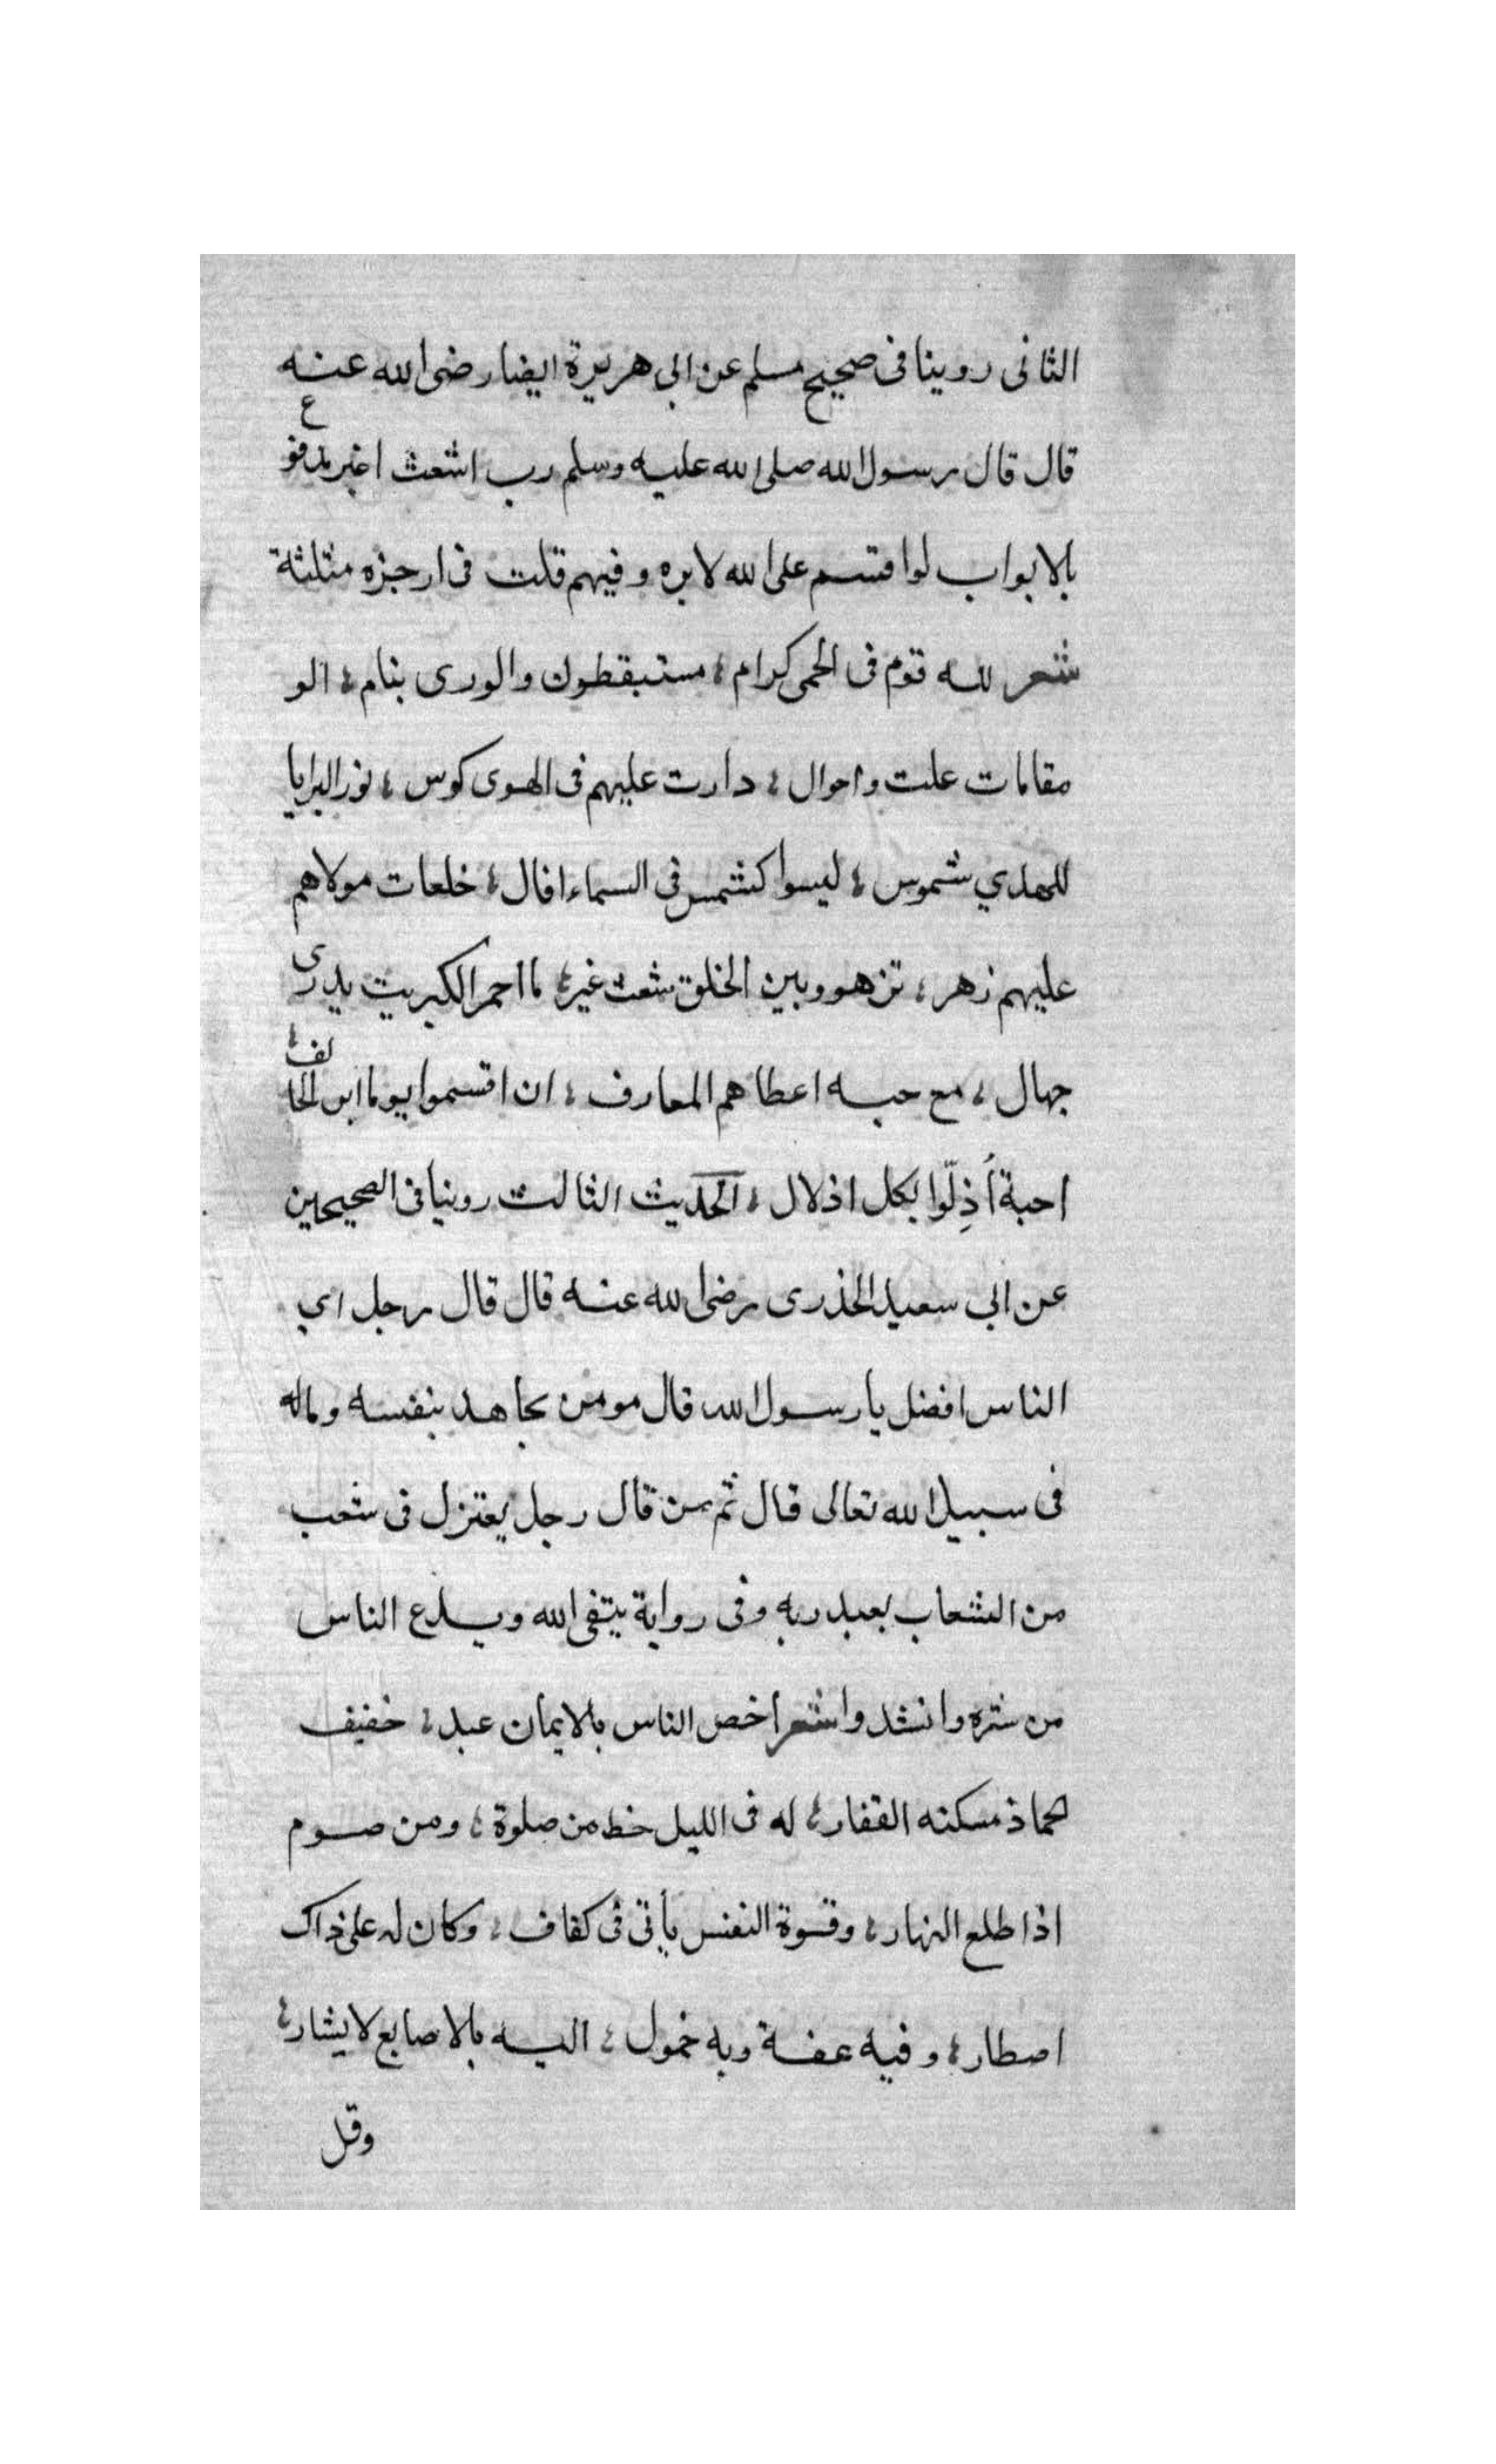 الثانى روينا فى صحيح مسلم عن ابى هريرة ايضا رضى الله عنه
قال قال رسول الله صلى الله عليه وسلم رب اشعث اغبر مدفوع
بالابواب لو اقسم على الله لابره وفيهم قلت فى ارجزه مثلثة
شعر لله قوم فى الحمى كرام ؛ مستيقظون والورى بنام ؛ الو
مقامات علت واحوال ؛ دارت عليهم فى الهوى كوس ؛ نور البرايا
للهدي شموس ؛ ليسوا كشمس فى السماء افال ؛ خلعات مولاهم
عليهم زهر ؛ تزهو وبين الخلق شعث غبر ؛ ما احمر الكبريت يدرى
جهال ؛ مع حبه اعطاهم المعارف ؛ ان اقسموا يوما ابر الحالف ؛
احبة أُذِلّوا بكل اذلال ؛ الحديث الثالث روينا فى الصحيحين
عن ابى سعيد الخذرى رضى الله عنه قال قال رجل اي
الناس افضل يا رسول الله قال مومن يجاهد بنفسه وماله
فى سبيل الله تعالى قال ثم من قال رجل يعتزل فى شعب
من الشعاب يعبد ربه وفى رواية يتقى الله ويدع الناس
من شره وانشد واشعر اخص الناس بالايمان عبد ؛ خفيف
لحاذ مسكنه القفار ؛ له فى الليل خط من صلوة ؛ ومن صوم
اذا طلع النهار ؛ وقوة النفس يأتى فى كفاف ؛ وكان له على ذاك
اصطار ؛ وفيه عفة وبه خمول ؛ اليه بالاصابع لايشار ؛
وقل